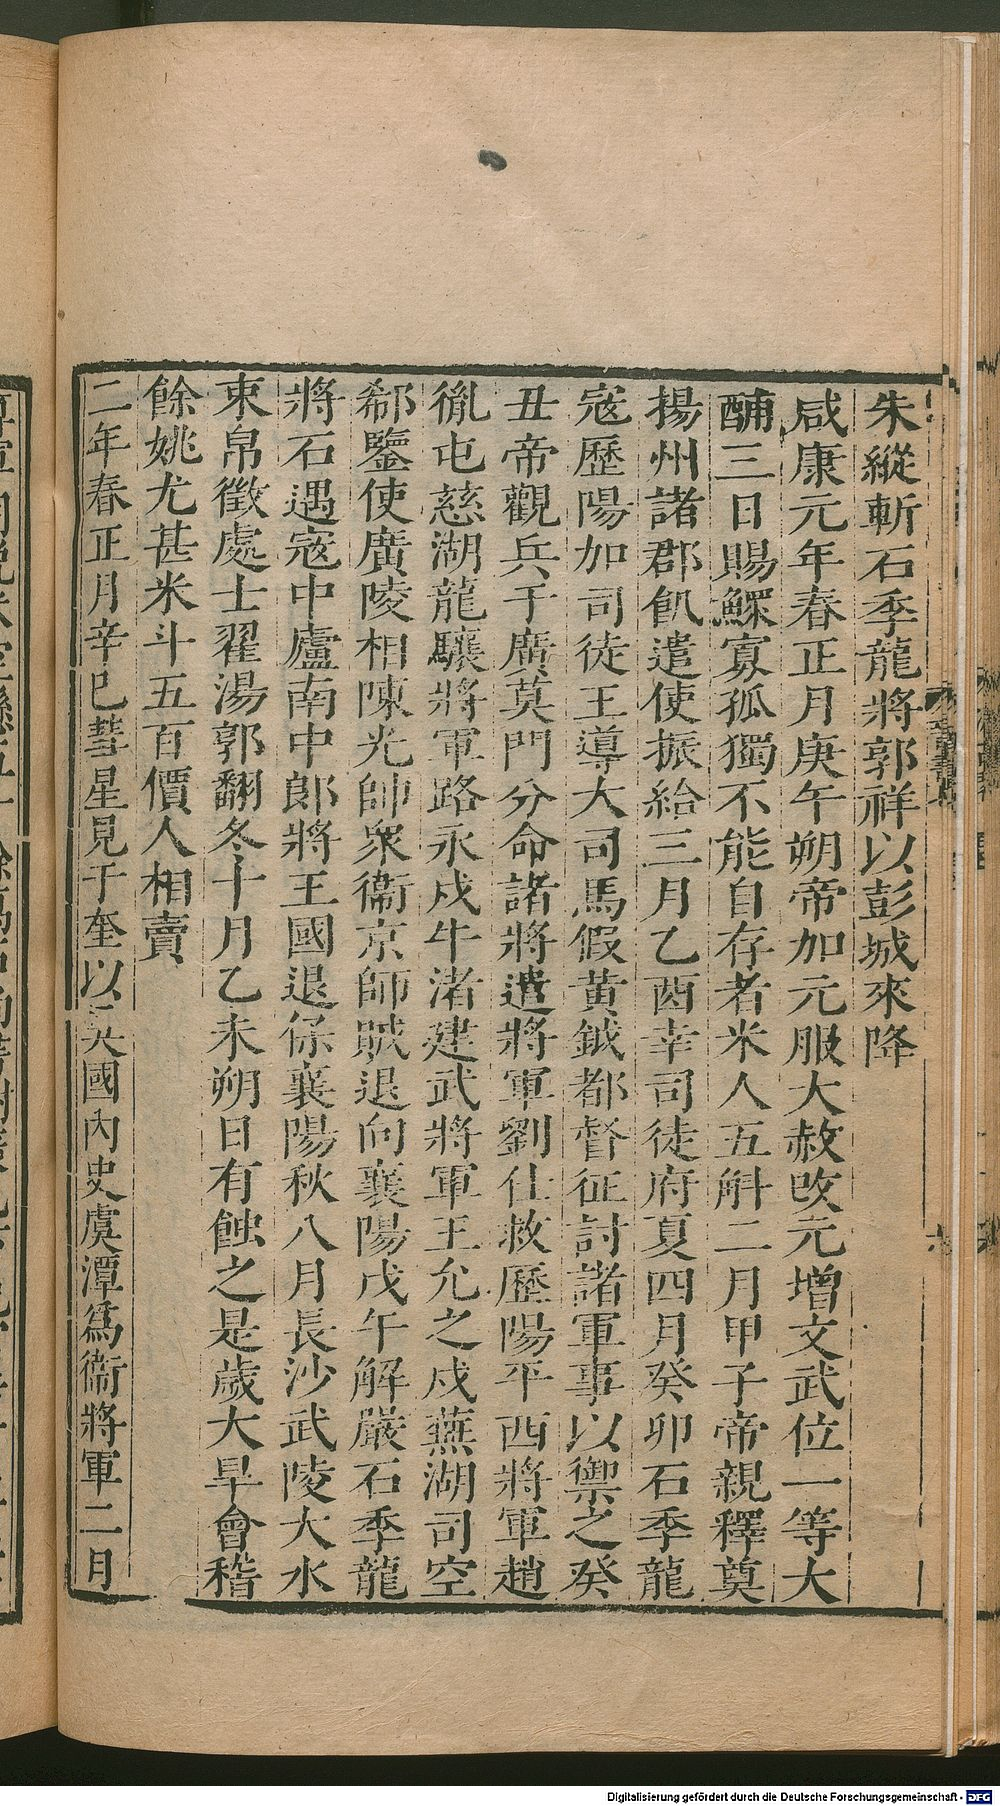 朱縱斬石季龍將郭祥以彭城來降
咸康元年春正月庚午朔帝加元服大赦改元增文武位一等大
酺三日賜鰥寡孤獨不能自存者米人五斛二月甲子帝親釋奠
揚州諸郡飢遣使振給三月乙酉幸司徒府夏四月癸卯石季龍
寇歷陽加司徒王導大司馬假黃鉞都督征討諸軍事以禦之癸
丑帝觀兵于廣莫門分命諸將遣將軍劉仕救歷陽平西將軍趙
胤屯慈湖龍驤將軍路永戍牛渚建武將軍王允之戍蕪湖司空
郗鑒使廣陵相陳光帥衆衞京師賊退向襄陽戊午解嚴石季龍
將石遇寇中廬南中郎將王國退保襄陽秋八月長沙武陵大水
束帛徵處士翟湯郭翻冬十月乙未朔日有蝕之是歲大旱會稽
餘姚尤甚米斗五百價人相賣
二年春正月辛巳彗星見于奎以吳國內史虞潭爲衞將軍二月
Digitalisierung gefördert durch die Deutsche Forschungsgemeinschaft - DFG